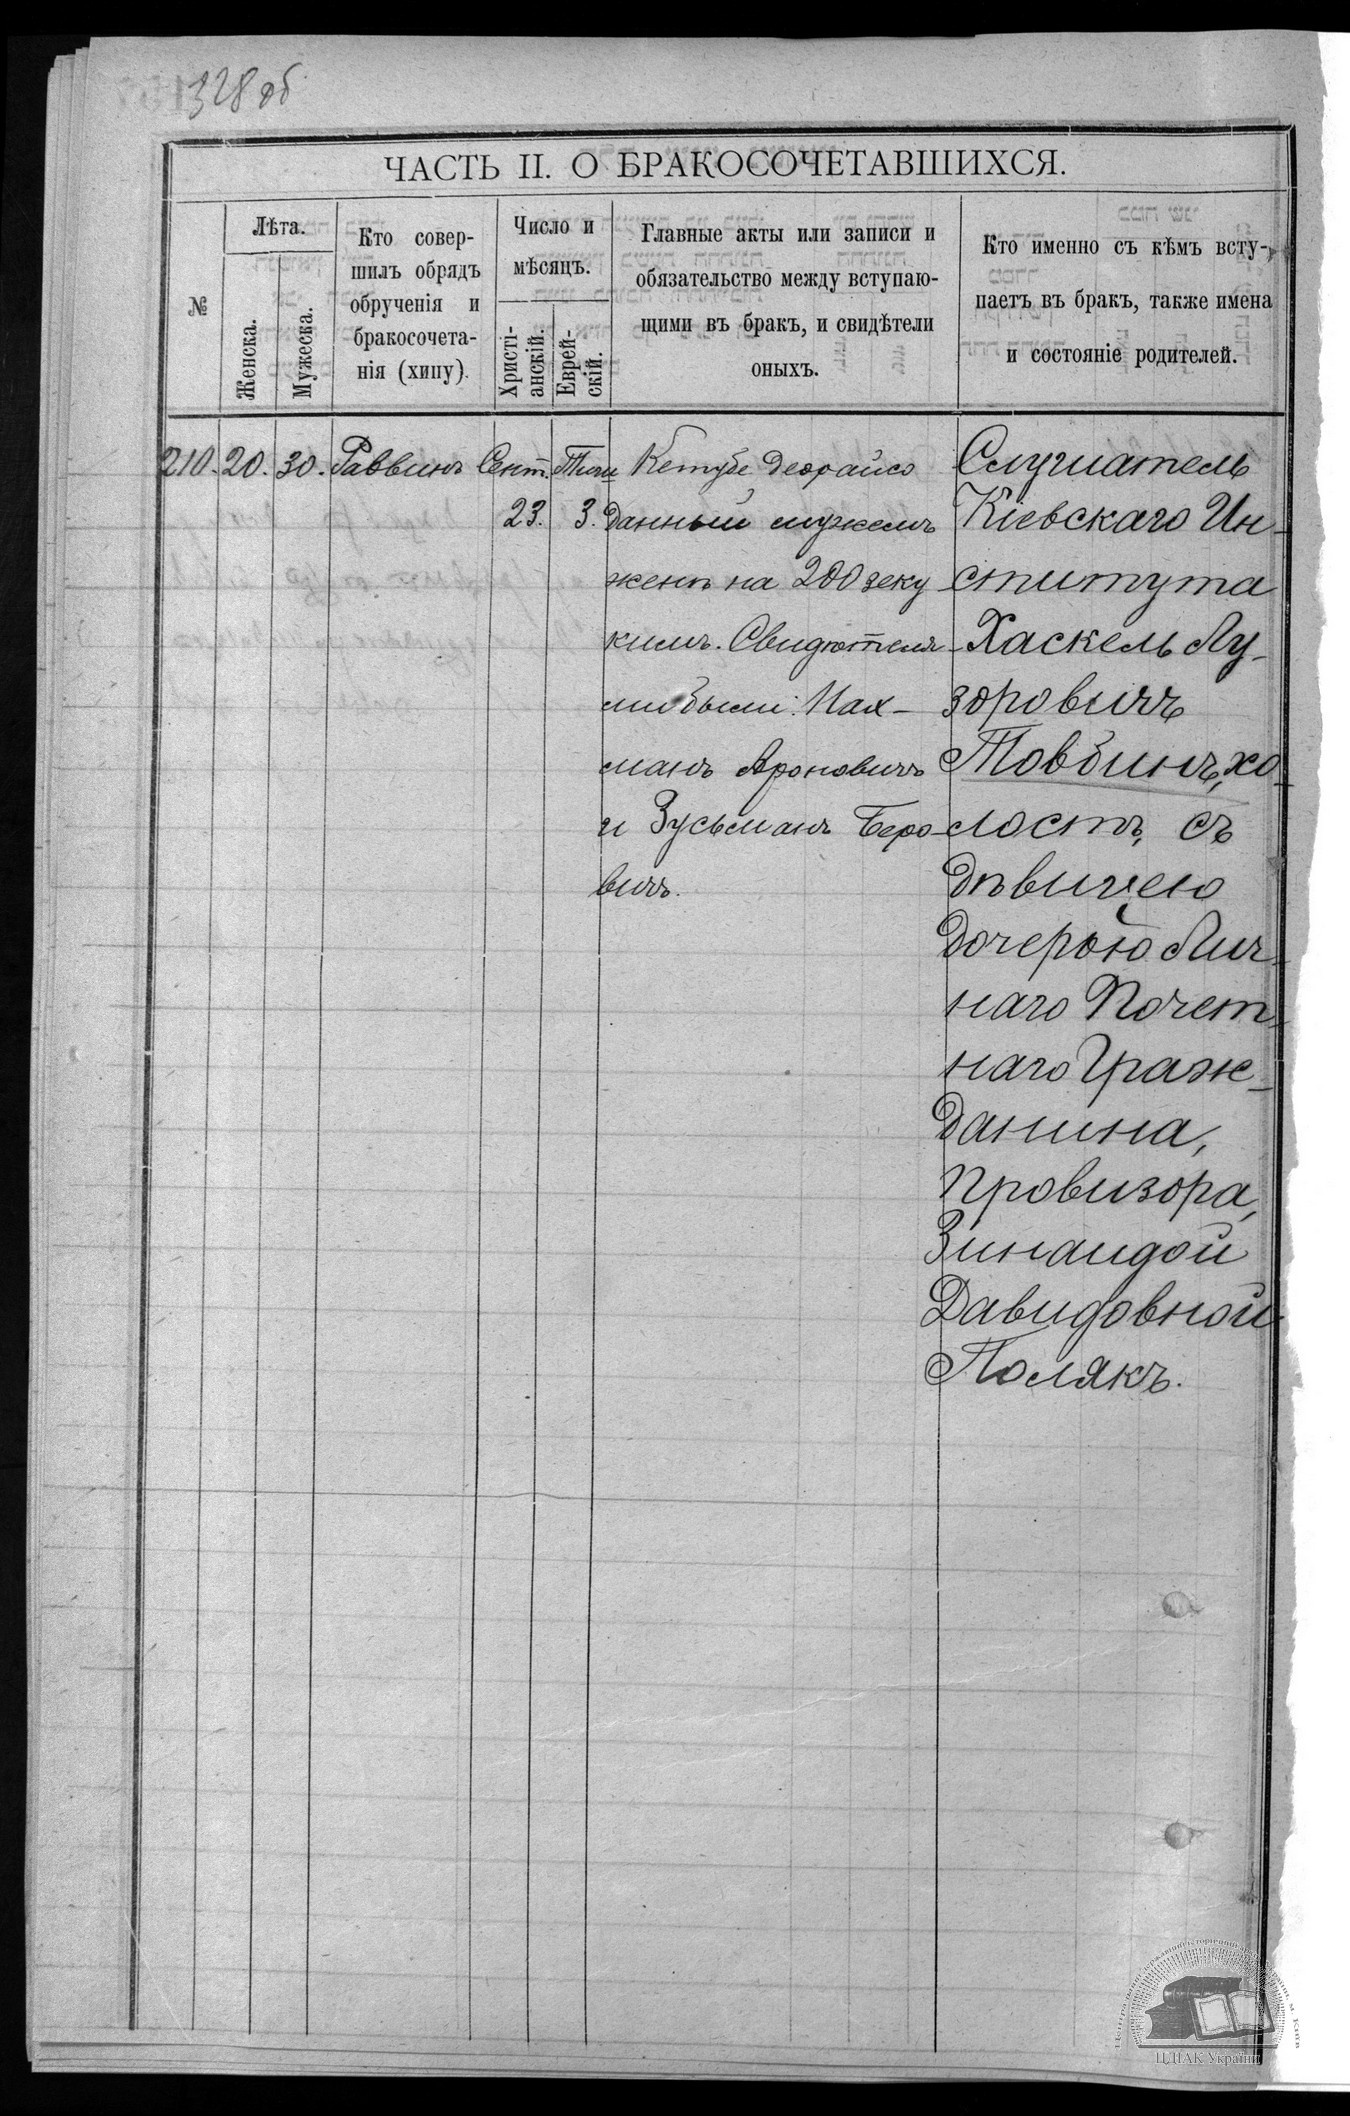 328 об
ЧАСТЬ II. О БРАКОСОЧЕТАВШИХСЯ.
№
Лѣта.
Женска.
Мужеска.
Кто совер-
шилъ обрядъ
обрученія и
бракосочета-
нія (хипу).
Число и
мѣсяцъ.
Христі-
анскій.
Еврей-
скій.
Главные акты или записи и
обязательство между вступаю-
щими въ бракъ, и свидѣтели
оныхъ.
Кто именно съ кѣмъ всту-
паетъ въ бракъ, также имена
и состояніе родителей.
210. 20. 30. Раввинъ Сент. Тишри
23. 3.
Кетубе деорайсо
данный мужемъ
женѣ на 200 зеку
кимъ. Свидѣтеля-
ми были: Нах-
манъ Ароновичъ
и Зусьманъ Беро-
вичъ.
Слушатель
Кіевскаго Ин-
ститута
Хаскель Лу-
зоровичъ
Товбинъ, хо-
лостъ, съ
дѣвицею
дочерью Лич-
наго Почет-
наго Граж-
данина,
Провизора,
Зинаидой
Давидовной
Полякъ.
ЦДІАК України